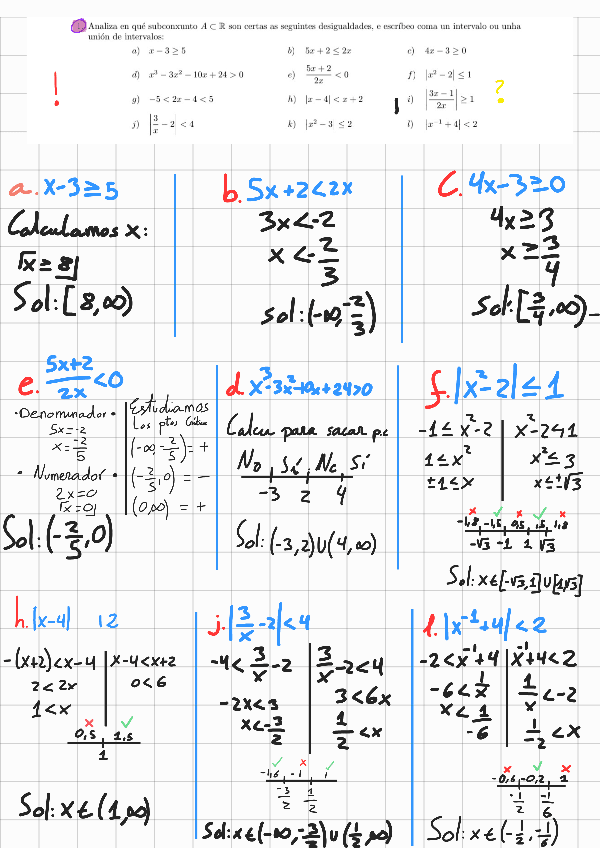 Analiza en qué subconxunto A ⊂ ℝ son certas as seguintes desigualdades, e escríbeo coma un intervalo ou unha
unión de intervalos:
a) x − 3 ≥ 5
b) 5x + 2 ≤ 2x
c) 4x − 3 ≥ 0
d) x³ − 3x² − 10x + 24 > 0
e) (5x + 2)/(2x) < 0
f) |x² − 2| ≤ 1
g) −5 < 2x − 4 < 5
h) |x − 4| < x + 2
i) |(3x − 1)/(2x)| ≥ 1
j) |3/x − 2| < 4
k) |x² − 3| ≤ 2
l) |x⁻¹ + 4| < 2
!
?
a. x-3≥5
Calculamos x:
x≥8
Sol: [8,∞)
b. 5x+2<2x
3x<-2
x<-2/3
Sol: (-∞,-2/3)
C. 4x-3≥0
4x≥3
x≥3/4
Sol: [3/4,∞)
e. (5x+2)/2x<0
·Denominador·
5x=-2
x=-2/5
· Numerador ·
2x=0
x=0
Estudiamos
Los ptos
(-∞-2/5) = +
(-2/5,0) = -
(0,∞) = +
Sol: (-2/5,0)
d. x³-3x²-10x+24>0
Calcu para sacar p.c
No, Sí, No, Sí
-3 2 4
Sol: (-3,2)∪(4,∞)
f. |x²-2|≤1
-1≤x²-2
1≤x²
±1≤x
x²-2≤1
x²≤3
x≤±√3
-1,8 -1,5 0,5 1,5 1,8
-√3 -1 1 √3
Sol: x∈[-√3,1]∪[1,√3]
h. |x-4| 12
-(x+2)<x-4
2<2x
1<x
x-4<x+2
0<6
0,5 1,5
1
Sol: x∈(1,∞)
j. |3/x-2|<4
-4<3/x-2
-2x<3
x<-3/2
3/x-2<4
3<6x
1/2<x
-1,6 -1 1
-3/2 1/2
Sol: x∈(-∞,-3/2)∪(1/2,∞)
l. |x⁻¹+4|<2
-2<x⁻¹+4
-6<1/x
x<1/-6
x⁻¹+4<2
1/x<-2
1/-2<x
-0,6 -0,2 1
-1/2 -1/6
Sol: x∈(-1/2,-1/6)